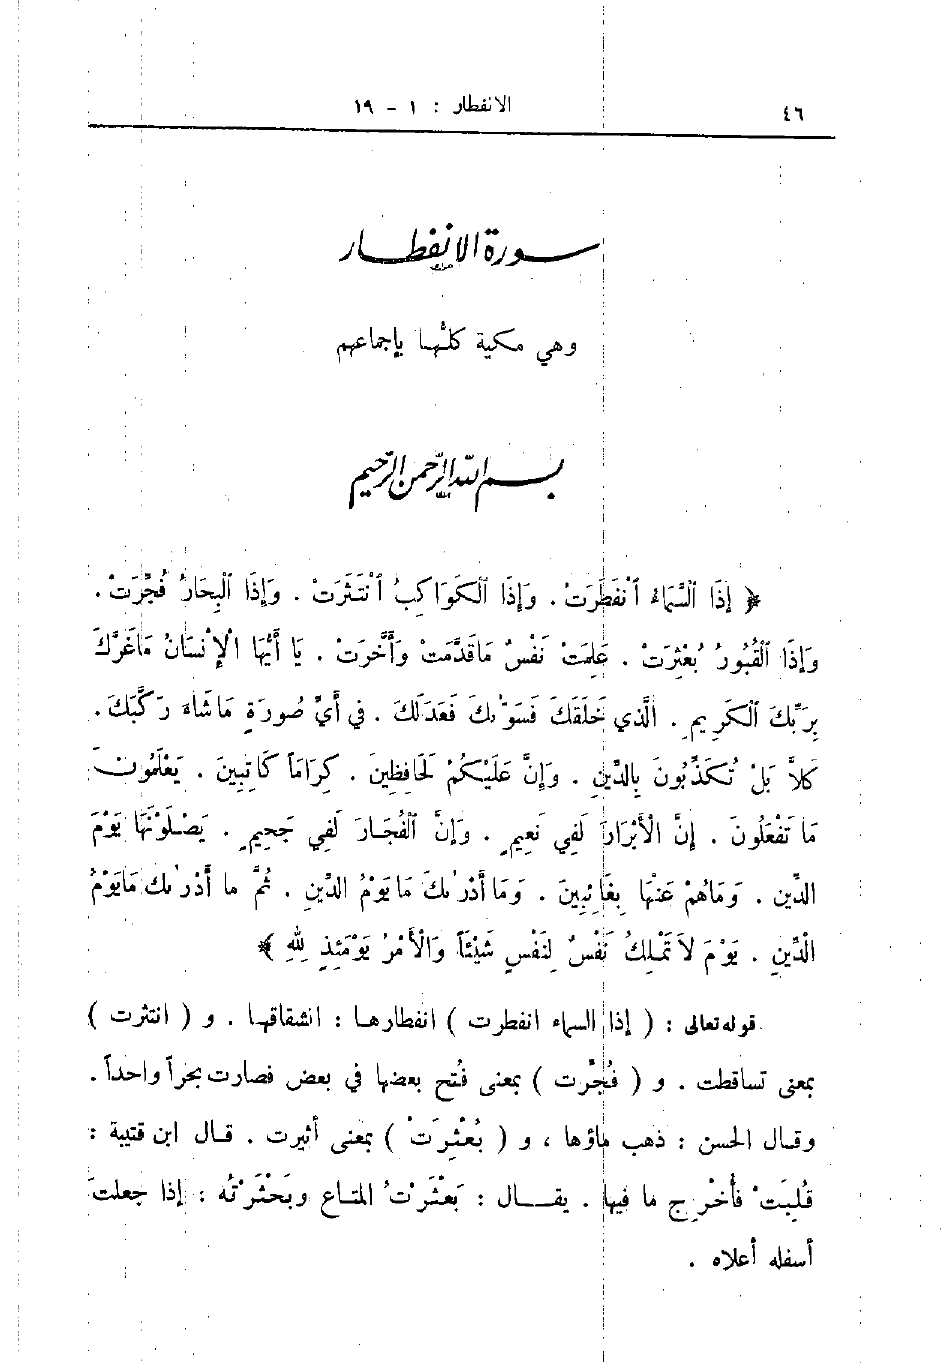 ٤٦
الانفطار : ١ - ١٩
سورة الانفطار
وهي مكية كلّها بإجماعهم
بسم الله الرحمن الرحيم
﴿ إِذَا ٱلسَّمَاءُ ٱنْفَطَرَتْ . وَإِذَا ٱلْكَوَاكِبُ ٱنْتَثَرَتْ . وَإِذَا ٱلْبِحَارُ فُجِّرَتْ .
وَإِذَا ٱلْقُبُورُ بُعْثِرَتْ . عَلِمَتْ نَفْسٌ مَاقَدَّمَتْ وَأَخَّرَتْ . يَا أَيُّهَا الْإِنْسَانُ مَاغَرَّكَ
بِرَبِّكَ ٱلْكَرِيمِ . الَّذِي خَلَقَكَ فَسَوّٰىكَ فَعَدَلَكَ . فِي أَيِّ صُورَةٍ مَا شَاءَ رَكَّبَكَ .
كَلاَّ بَلْ تُكَذِّبُونَ بِالدِّينِ . وَإِنَّ عَلَيْكُمْ لَحَافِظِينَ . كِرَاماً كَاتِبِينَ . يَعْلَمُونَ
مَا تَفْعَلُونَ . إِنَّ الْأَبْرَارَ لَفِي نَعِيمٍ . وَإِنَّ ٱلْفُجَّارَ لَفِي جَحِيمٍ . يَصْلَوْنَهَا يَوْمَ
الدِّينِ . وَمَاهُمْ عَنْهَا بِغَائِبِينَ . وَمَا أَدْرٰىكَ مَايَوْمُ الدِّينِ . ثُمَّ ما أَدْرٰىكَ مَايَوْمُ
الْدِّينِ . يَوْمَ لاَ تَمْلِكُ نَفْسٌ لِنَفْسٍ شَيْئاً وَالْأَمْرُ يَوْمَئِذٍ لِلّٰهِ ﴾
قوله تعالى : ( إذا السماء انفطرت ) انفطارها : انشقاقها . و ( انتثرت )
بمعنى تساقطت . و ( فُجِّرت ) بمعنى فُتح بعضها في بعض فصارت بحراً واحداً .
وقال الحسن : ذهب ماؤها ، و ( بُعْثِرَتْ ) بمعنى أثيرت . قال ابن قتيبة :
قُلِبَتْ فأُخْرِج ما فيها . يقال : بَعْثَرْتُ المتاع وبَحْثَرْتُه : إذا جعلتَ
أسفله أعلاه .